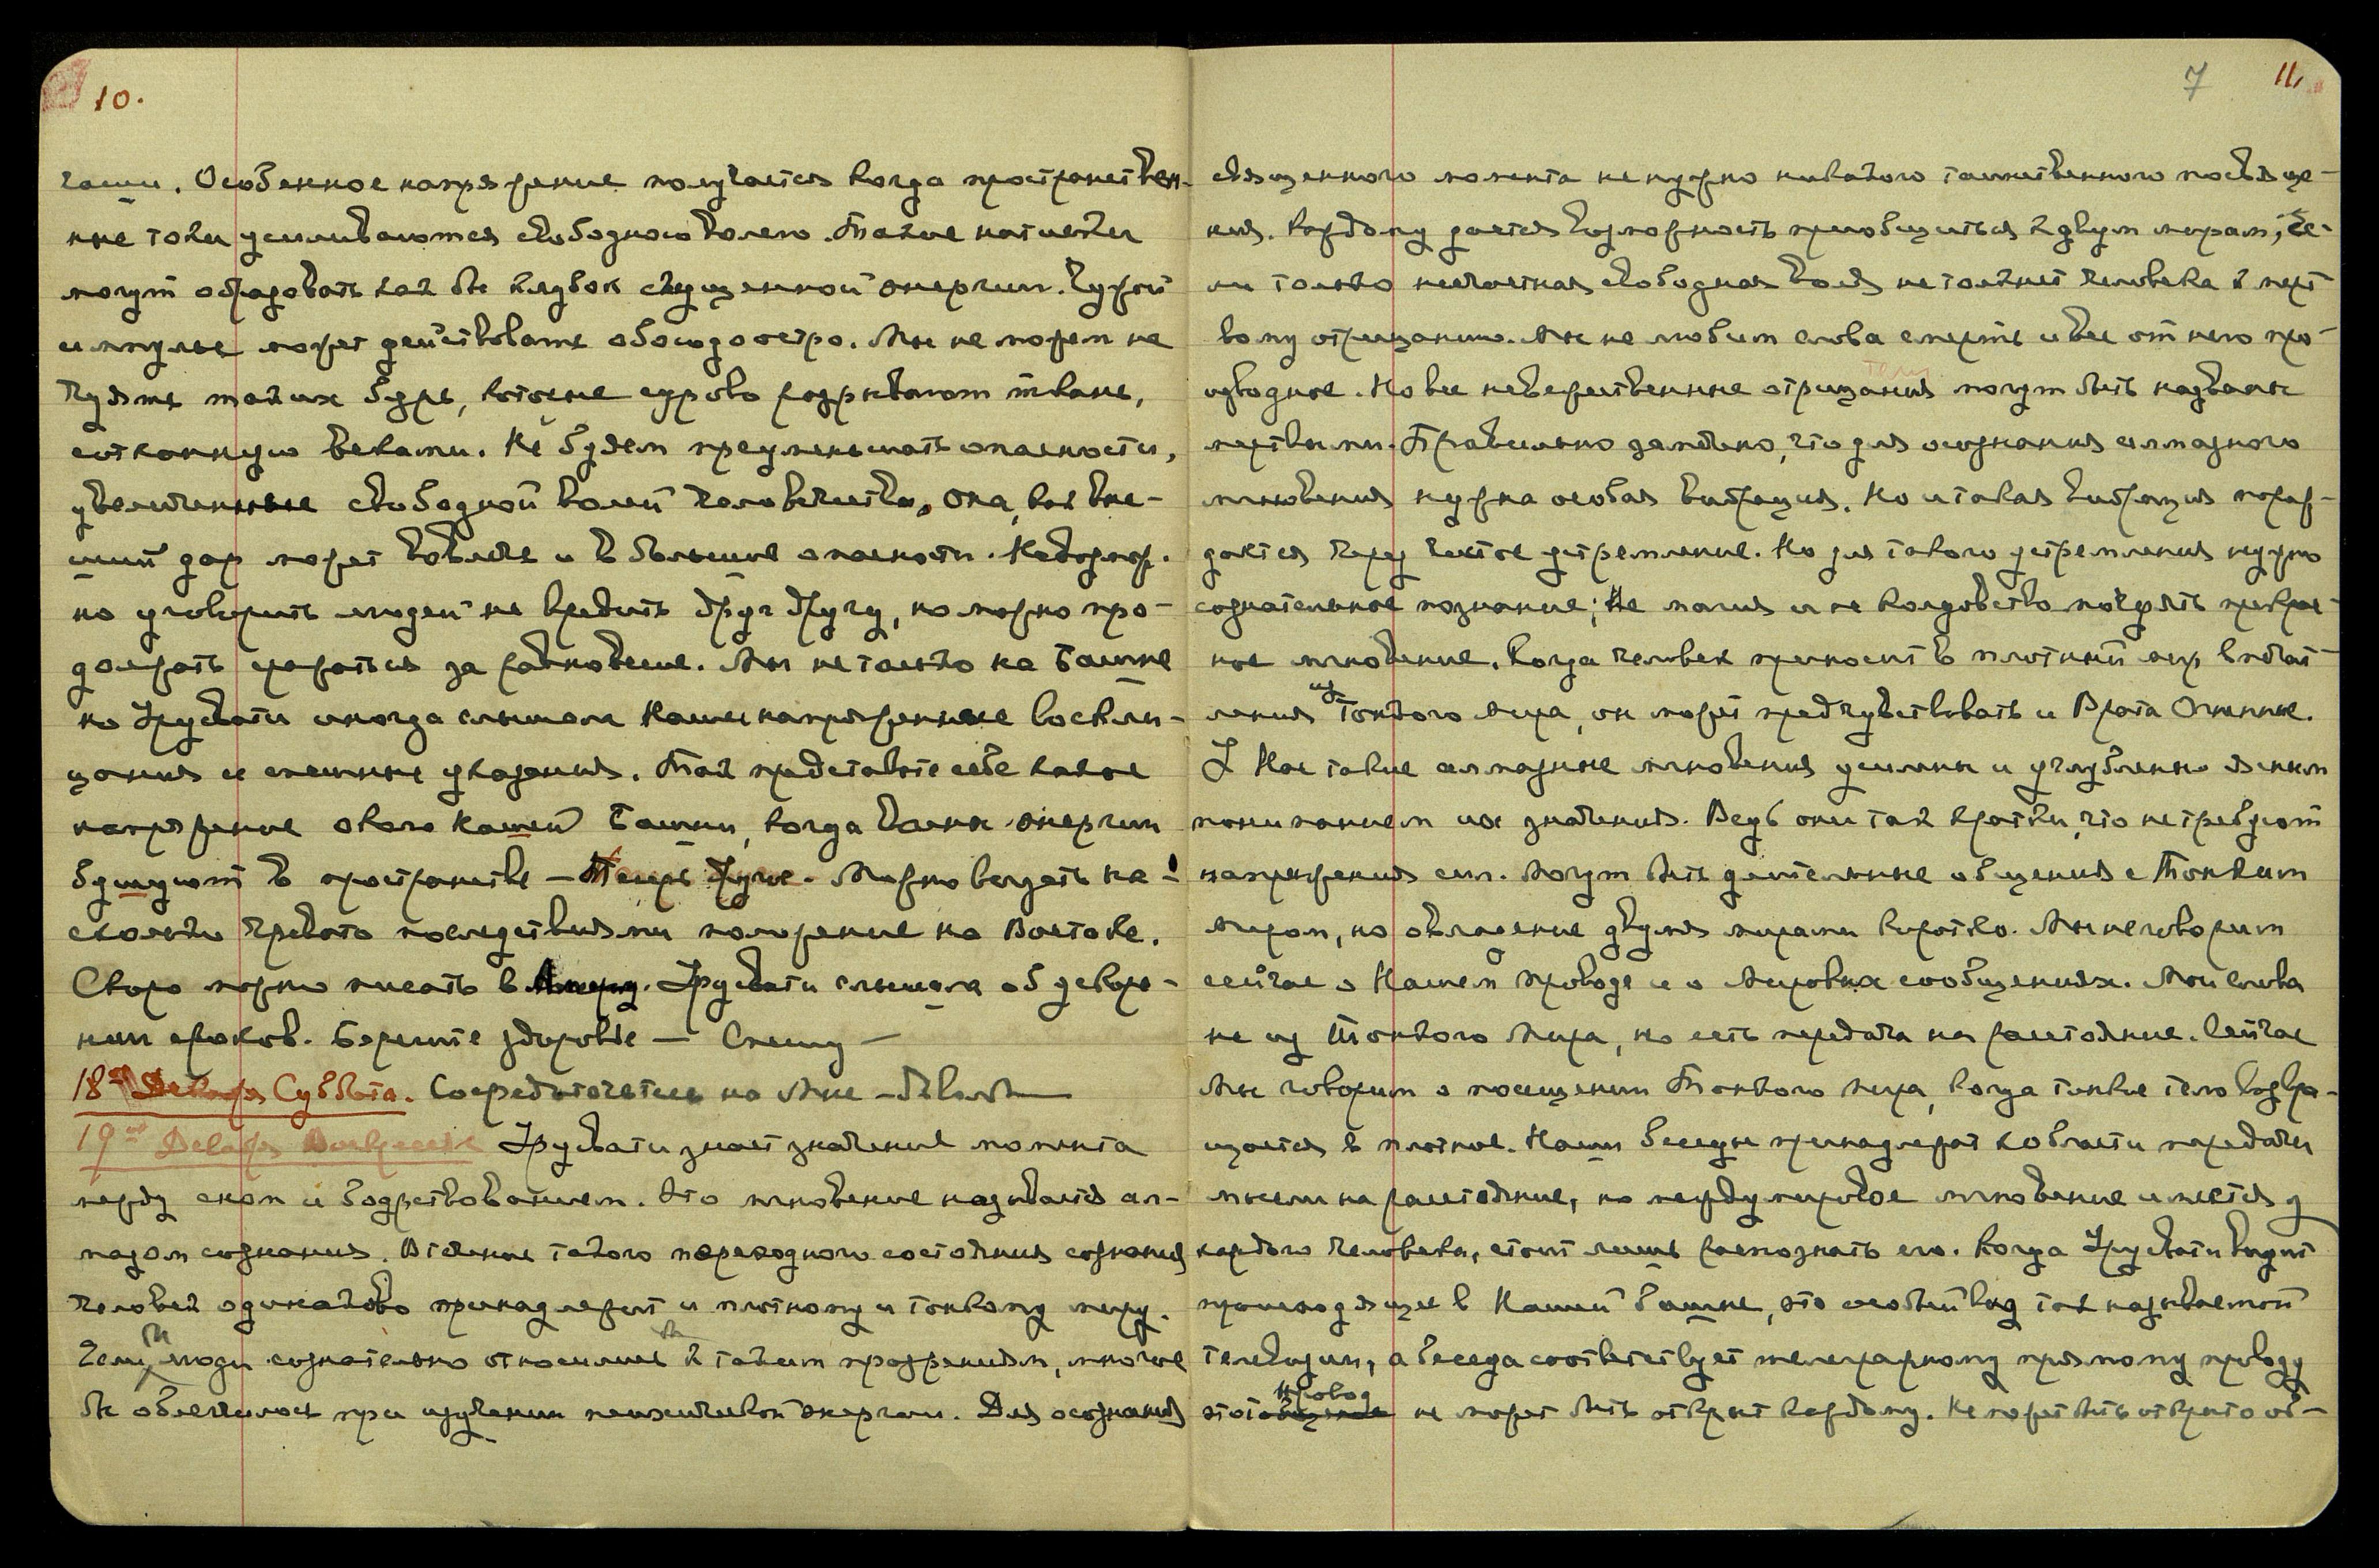 10.
наши. Особенное напряжение получается когда пространствен-
ные токи усиливаются свободною волею. Такие натиски
могут образовать как бы клубок сгущенной энергии. Чужой
импульс может действовать обоюдоостро. Мы не можем не
чуять таких бурь, которые сурово разрывают ткань,
сотканную веками. Не будем преуменьшать опасности,
увеличенные свободной волей человечества. Она, как выс-
ший дар может вовлечь и в большие опасности. Невозмож-
но уговорить людей не вредить друг другу, но можно про-
должать сражаться за равновесие. Мы не только на Башне
но Урусвати иногда слышала Наши напряженные восклиц-
цания и спешные указания. Так представьте себе какое
напряжение около Нашей Башни, когда волны энергии
бушуют в пространстве — Теперь другое. Можно видеть на-
сколько чревато последствиями положение на Востоке.
Скоро можно писать в Америку. Урусвати слышала об ускоре-
нии сроков. Берегите здоровье — Спешу —
18го Декабря Суббота. Сосредоточьтесь на Мне —
19го Декабря Воскресенье Урусвати знает значение момента
между сном и бодрствованием. Это мгновение называется ал-
мазом сознания. В течение такого переходного состояния сознания
человек одинаково принадлежит и плотному и тонкому миру.
Если бы люди сознательно относились к таким прозрениям, многое
бы облегчилось при изучении психической энергии. Для осознания
7 11.
священного момента не нужно никакого таинственного посвяще-
ния. Каждому дается возможность приобщиться к двум мирам, ес-
ли только несчастная свободная воля не толкнет человека к мерт-
вому отрицанию. Мы не любим слова смерть и все от него про-
изводное. Но все невежественные отрицания могут быть названы
мертвыми. Правильно замечено, что для осознания алмазного
мгновения нужна особая вибрация. Но и такая вибрация порож-
дается через чистое устремление. Но для такого устремления нужно
сознательное познание; Не магия и не колдовство породить прекрас-
ное мгновение. Когда человек приносит в плотный мир впечат-
ления из Тонкого мира, он может предчувствовать и Врата Огненные.
У Нас такие алмазные мгновения усилены и углублены ясным
пониманием их значения. Ведь они так кратки, что не требуют
напряжения сил. Могут быть длительные общения с Тонким
Миром, но овладение двумя мирами коротко. Мы не говорим
сейчас о Нашем проводе и о Мировых сообщениях. Мои слова
не из Тонкого Мира, но есть передача на расстояние. Сейчас
Мы говорим о посещении Тонкого мира, когда тонкое тело возвра-
щается в плотное. Наши беседы принадлежат к области передачи
мысли на расстояние, но междумировое мгновение имеется у
каждого человека, стоит лишь распознать его. Когда Урусвати видит
происходящее в Нашей башне, это особый вид так называемой
телевизии, а беседа соответствует телеграфному прямому проводу
этот провод не может быть открыт каждому. Не может быть открыто об-